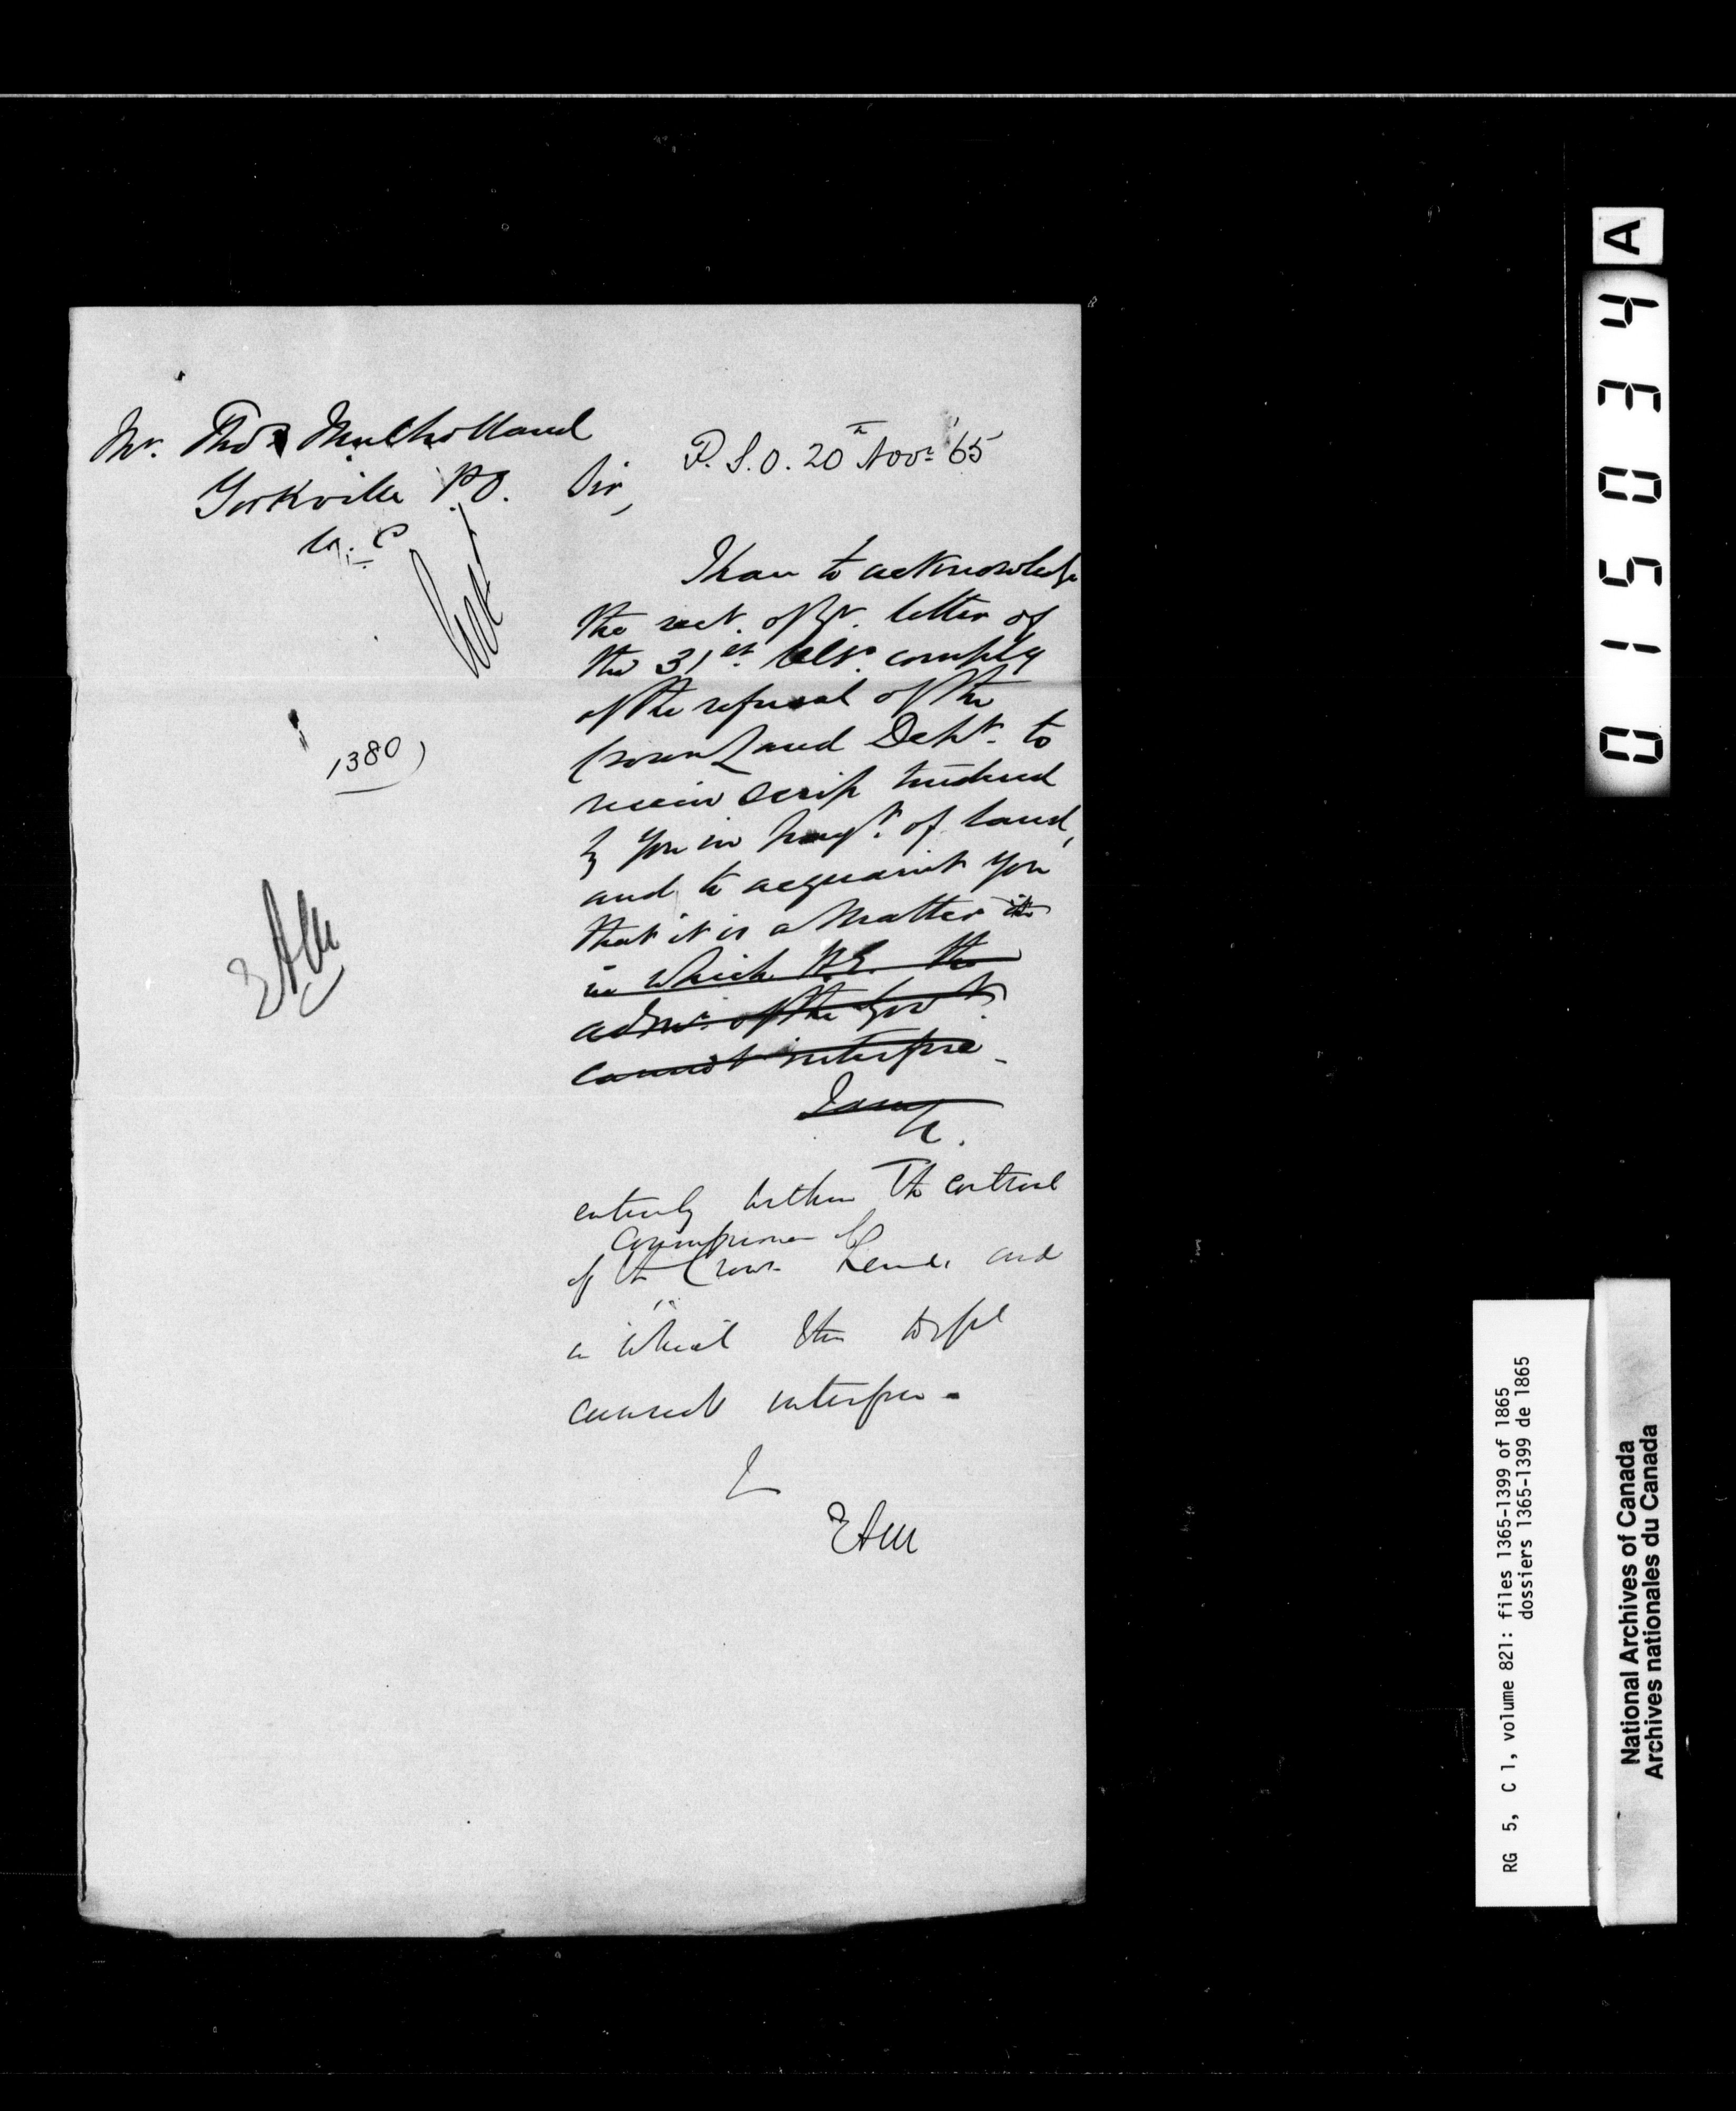 Mr. Thos Mulholland
Yorkville P.O.
C. W.
P.S.O. 20th Novr. '65
Sir,
I have to acknowledge
the rect. of yr. letter of
the 31st Ulto. complg
of the refusal of the
Crown Land Dept. to
receive scrip tendered
by you in payt. of land,
and to acquaint you
that it is a matter in
in which H.E. the
admr. of the Govt.
cannot interfere -
I am
&c.
1380
EAM
entirely within the control
Commissioner of
of the Crown Lands and
in which this
cannot interfere -
I
EAM
A
015034
RG 5, C 1, volume 821: files 1365-1399 of 1865
dossiers 1365-1399 de 1865
National Archives of Canada
Archives nationales du Canada